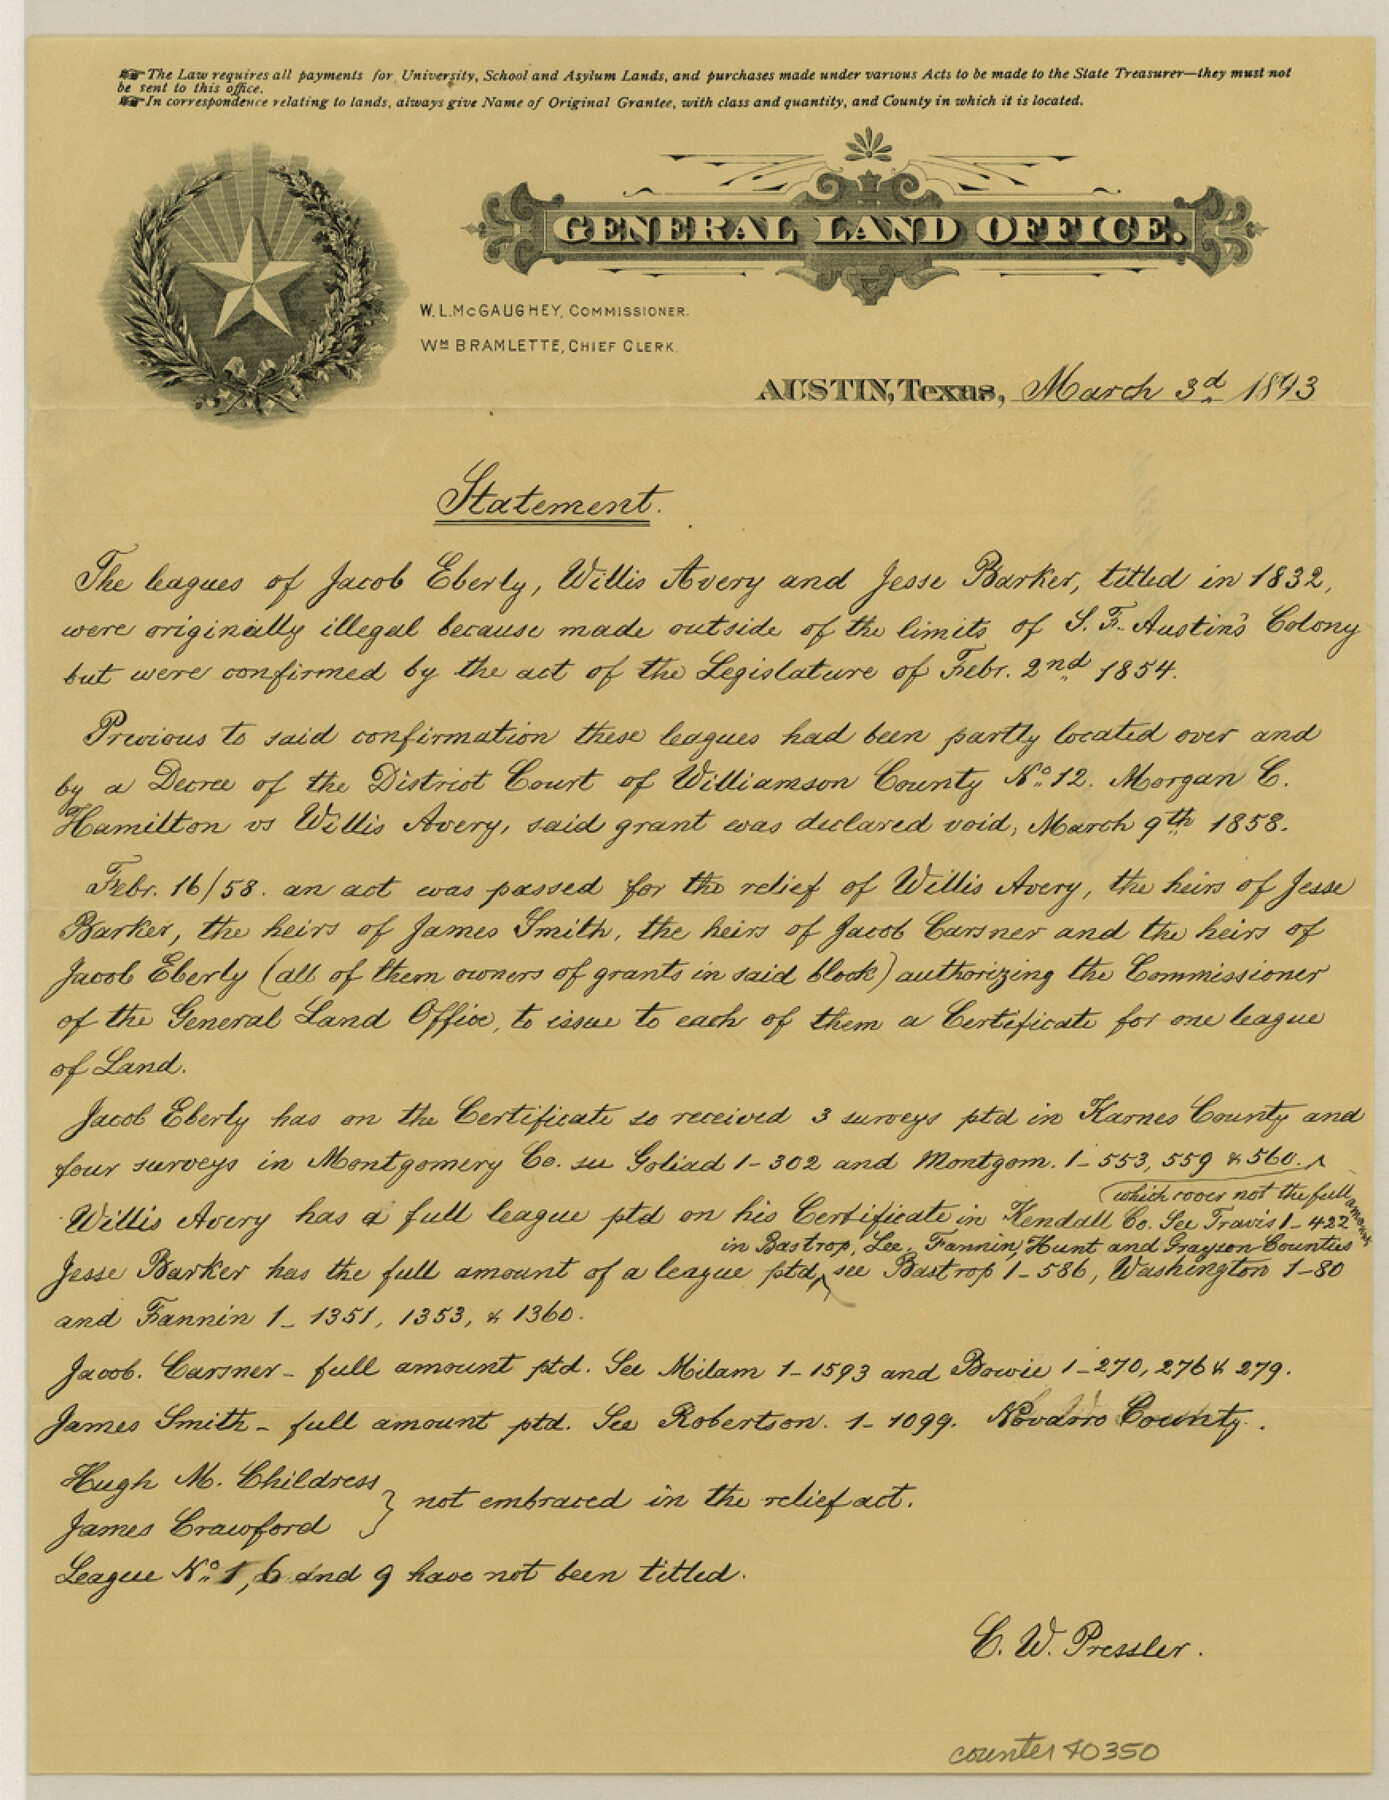 The Law requires all payments for University, School and Asylum Lands, and purchases made under various Acts to be made to the State Treasurer—they must not
be sent to this office.
In correspondence relating to lands, always give Name of Original Grantee, with class and quantity, and County in which it is located.
GENERAL LAND OFFICE.
W. L. McGAUGHEY, COMMISSIONER.
Wm BRAMLETTE, CHIEF CLERK.
AUSTIN, Texas, March 3d 1893
Statement.
The leagues of Jacob Eberly, Willis Avery and Jesse Barker, titled in 1832,
were originally illegal because made outside of the limits of S. F. Austin's Colony
but were confirmed by the act of the Legislature of Febr. 2nd 1854.
Previous to said confirmation these leagues had been partly located over and
by a Decree of the District Court of Williamson County No. 12. Morgan C.
Hamilton vs Willis Avery, said grant was declared void, March 9th 1858.
Febr. 16/58. an act was passed for the relief of Willis Avery, the heirs of Jesse
Barker, the heirs of James Smith, the heirs of Jacob Carsner and the heirs of
Jacob Eberly (all of them owners of grants in said block) authorizing the Commissioner
of the General Land Office, to issue to each of them a Certificate for one league
of Land.
Jacob Eberly has on the Certificate so received 3 surveys ptd in Karnes County and
four surveys in Montgomery Co. see Goliad 1-302 and Montgom. 1-553, 559 & 560.
(which cover not the full amount
Willis Avery has a full league ptd on his Certificate in Kendall Co. See Travis 1-422
in Bastrop, Lee, Fannin, Hunt and Grayson Counties
Jesse Barker has the full amount of a league ptd, see Bastrop 1-586, Washington 1-80
and Fannin 1-1351, 1353, & 1360.
Jacob. Carsner - full amount ptd. See Milam 1-1593 and Bowie 1-270, 276 & 279.
James Smith - full amount ptd. See Robertson. 1-1099. County.
Hugh M. Childress
James Crawford } not embraced in the relief act.
League No. 1, 6 and 9 have not been titled.
C. W. Pressler.
counter 40350